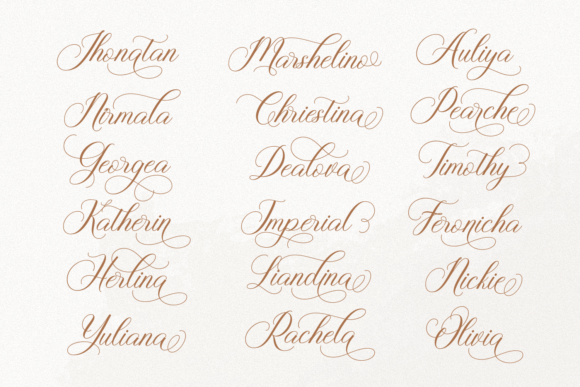 Jhonatan Marshelino Auliya
Nirmala Chriestina Pearche
Georgea Dealova Timothy
Katherin Imperial Feronicha
Herlina Liandina Nickie
Yuliana Rachela Olivia